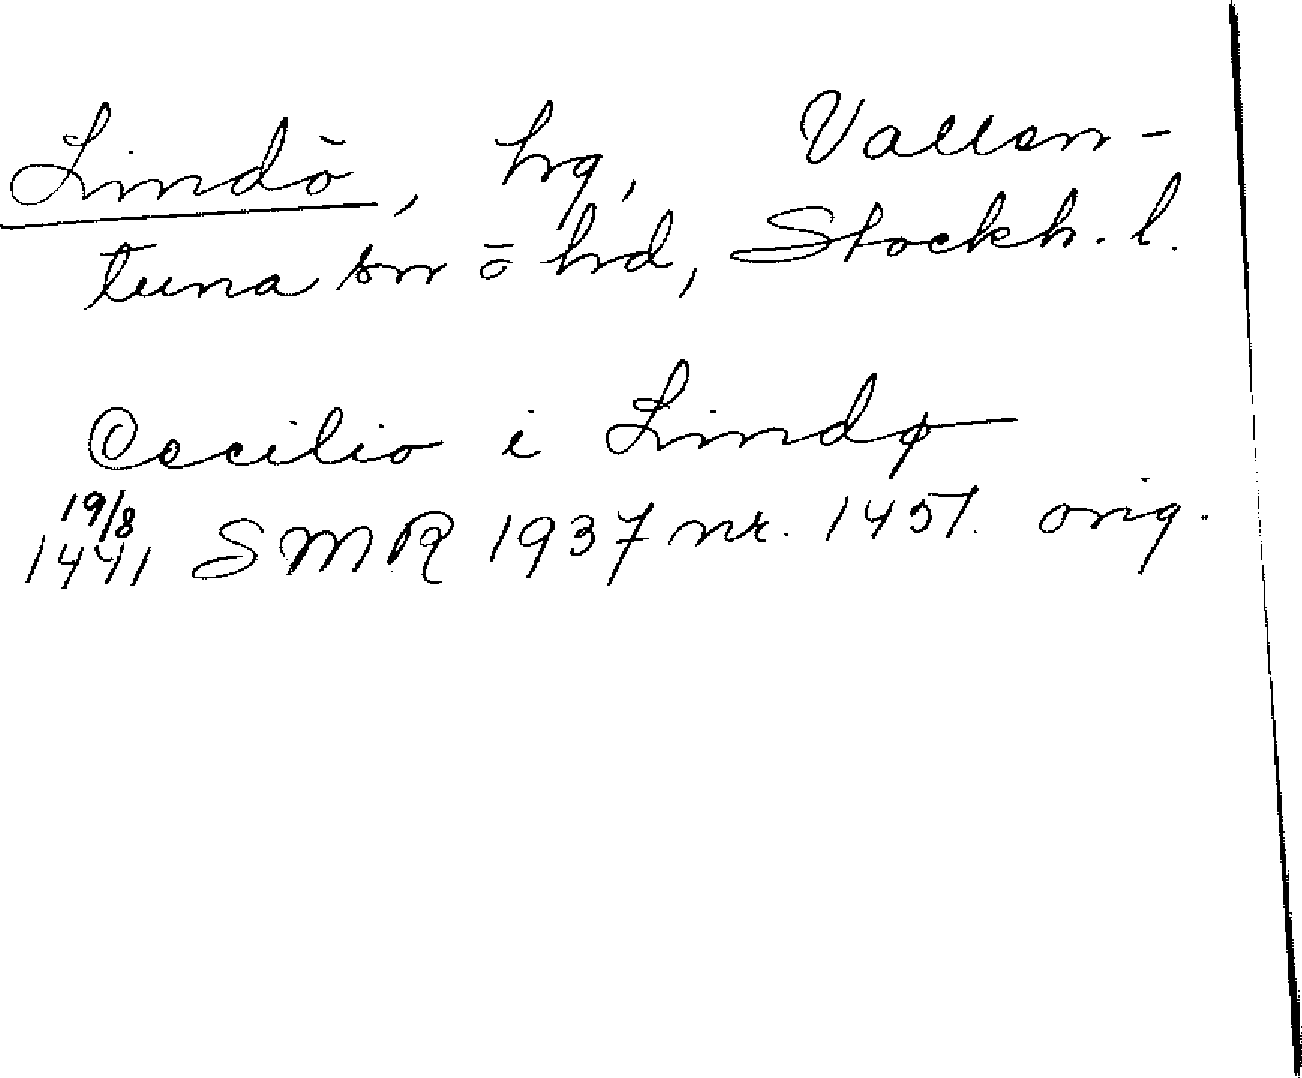 Lindö, hg, Vallen-
tuna sn ö hd, Stockh. l.
Cecilio i Lindø
19/8
1441 SMR 1937 nr. 1457. orig.